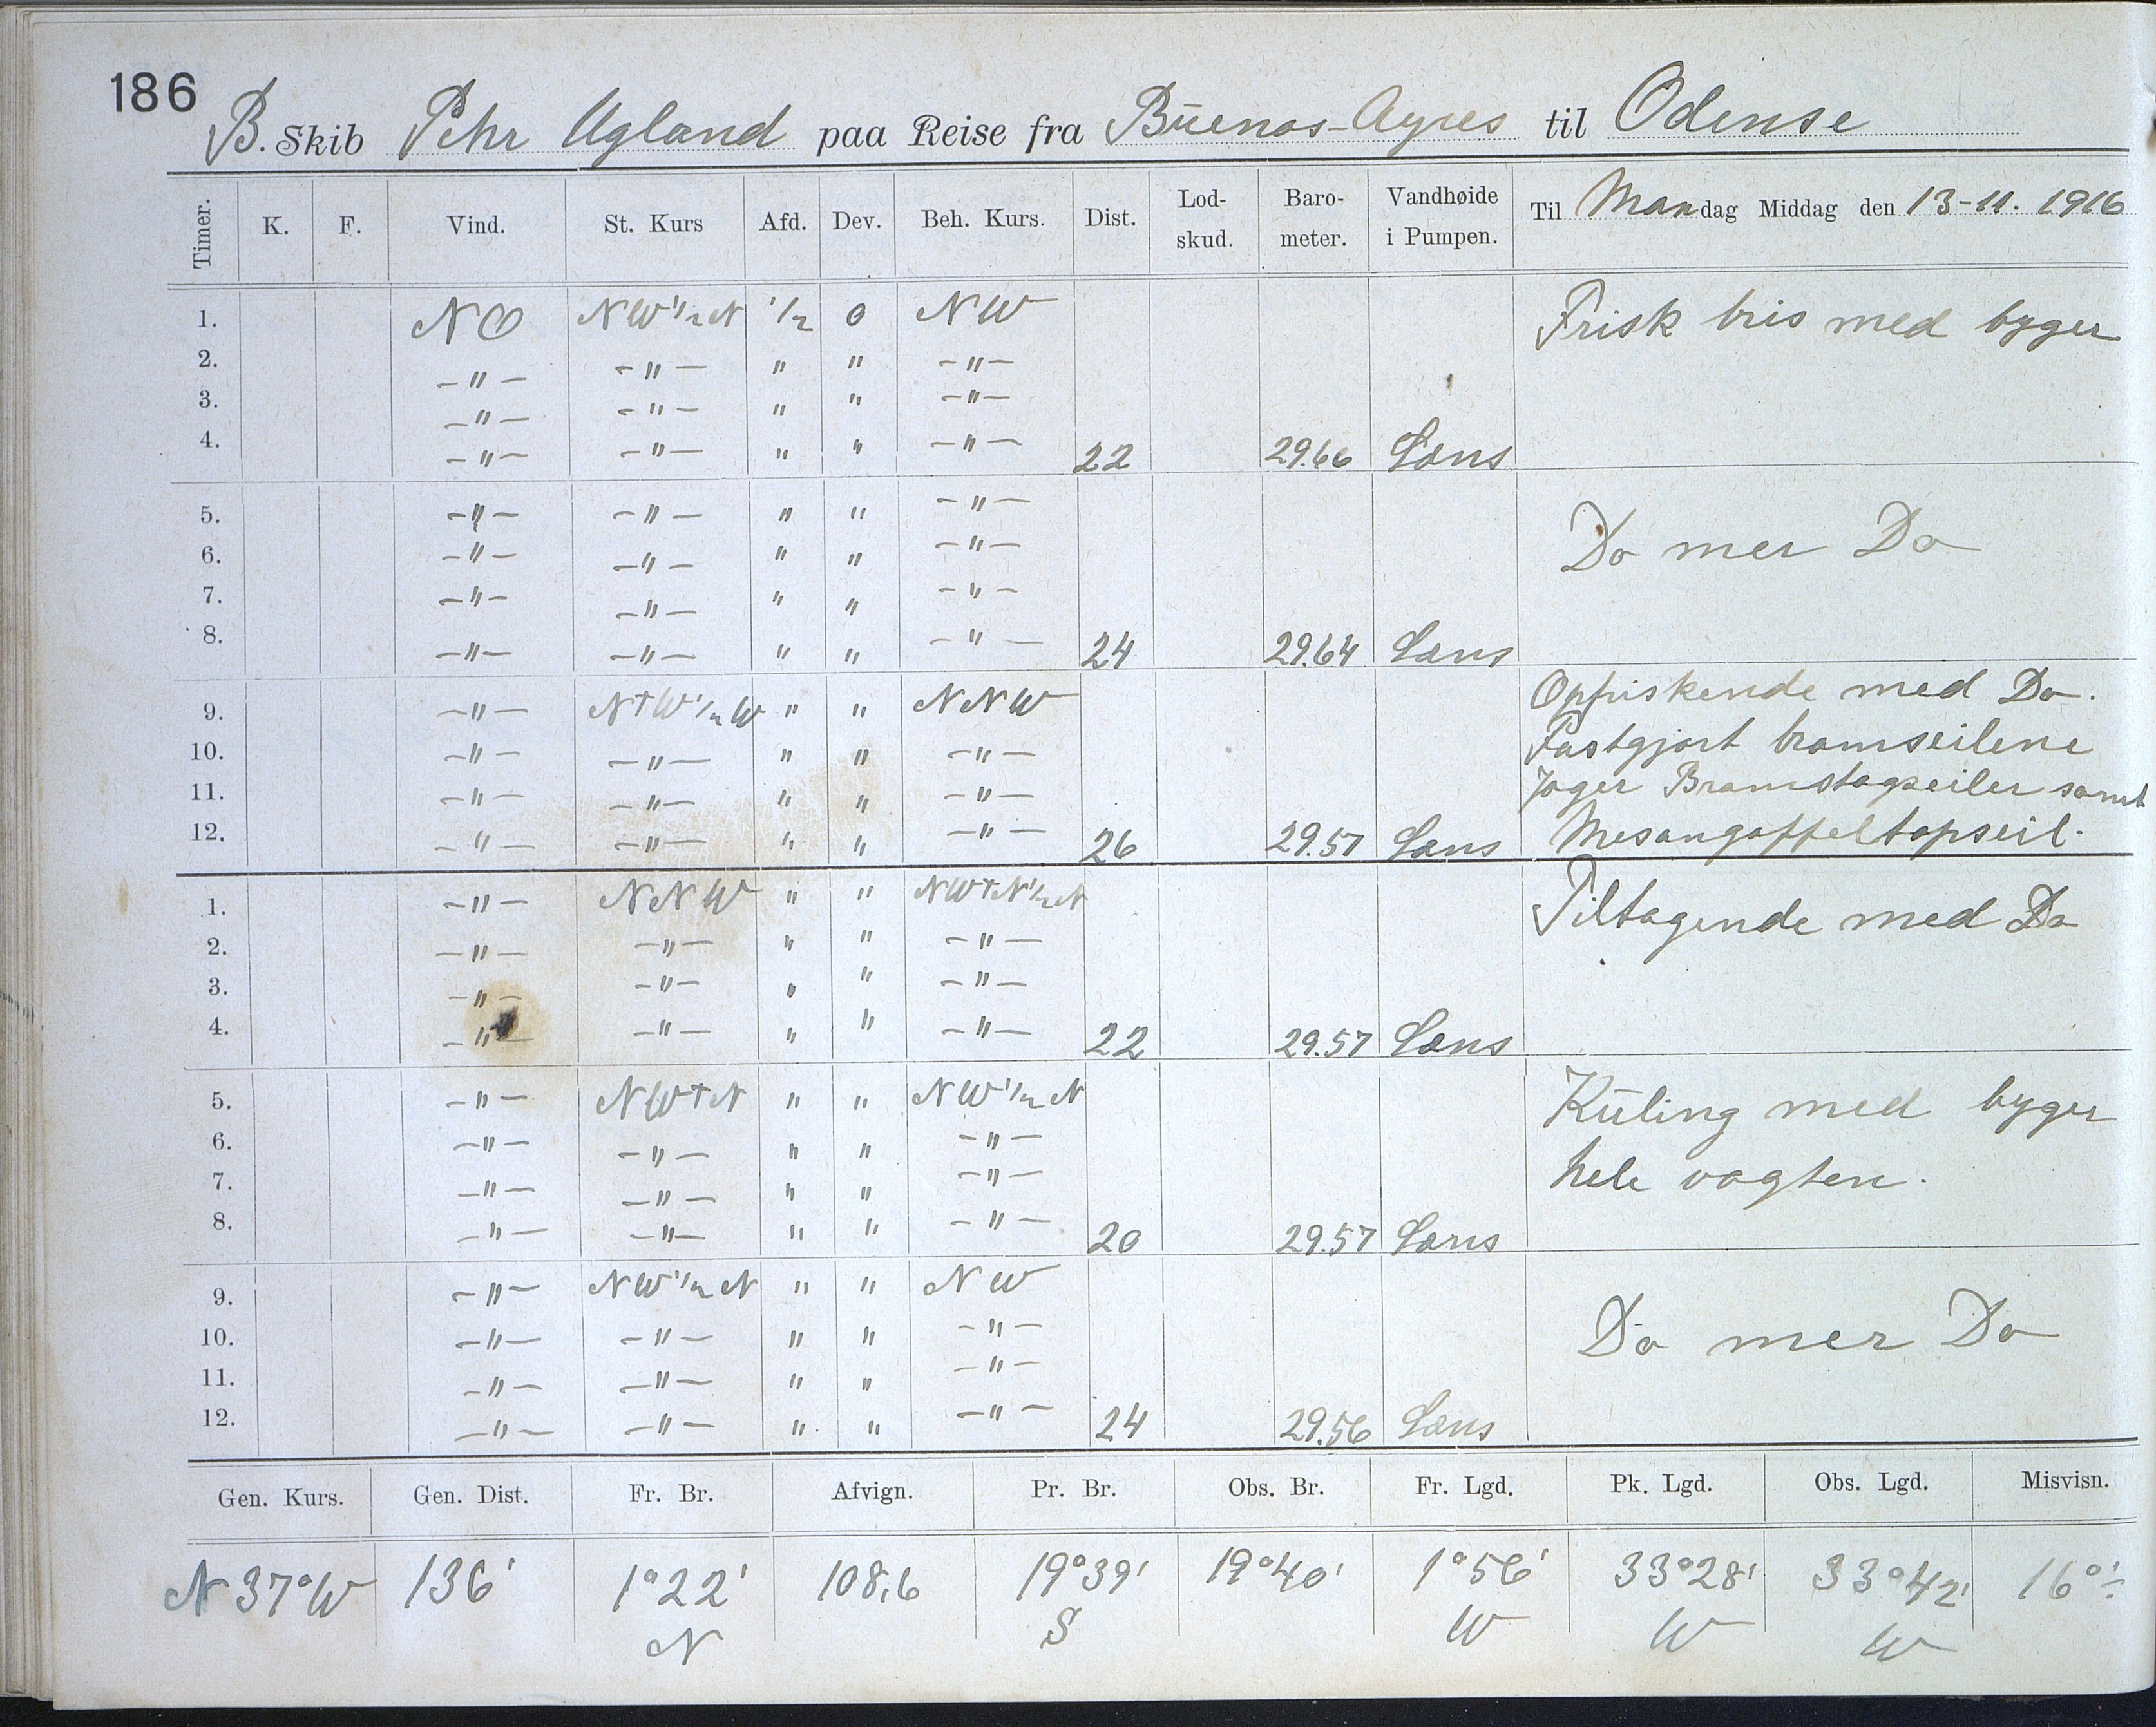 186
B. Skib Pehr Ugland paa Reise fra Buenos-Ayres til Odense
Timer. K. F. Vind. St. Kurs Afd. Dev. Beh. Kurs. Dist. Lod-skud. Baro-meter. Vandhøide i Pumpen. Til Mandag Middag den 13-11. 1916
1. NO NW 1/2 N 1/2 0 NW Frisk bris med byger
2. -"- -"- " " -"-
3. -"- -"- " " -"-
4. -"- -"- " " -"- 22 29.66 Læns
5. -"- -"- " " -"-
6. -"- -"- " " -"- Do mer Do
7. -"- -"- " " -"-
8. -"- -"- " " -"- 24 29.64 Læns
9. -"- N†W 1/2 W " " NNW Opfriskende med Do.
10. -"- -"- " " -"- Fastgjort bramseilene
11. -"- -"- " " -"- Jager Bramstagseiler samt
12. -"- -"- " " -"- 26 29.57 Læns Mesangaffeltopseil.
1. -"- NNW " " NW†N 1/2 N Tiltagende med Do
2. -"- -"- " " -"-
3. -"- -"- " " -"-
4. -"- -"- " " -"- 22 29.57 Læns
5. -"- NW†N " " NW 1/2 N Kuling med byger
6. -"- -"- " " -"-
7. -"- -"- " " -"- hele vagten.
8. -"- -"- " " -"- 20 29.57 Læns
9. -"- NW 1/2 N " " NW
10. -"- -"- " " -"- Do mer Do
11. -"- -"- " " -"-
12. -"- -"- " " -"- 24 29.56 Læns
Gen. Kurs. Gen. Dist. Fr. Br. Afvign. Pr. Br. Obs. Br. Fr. Lgd. Pk. Lgd. Obs. Lgd. Misvisn.
N 37° W 136' 1°22' 108,6 19°39' 19°40' 1°56' 33°28' 33°42' 16° ÷
N S W W W